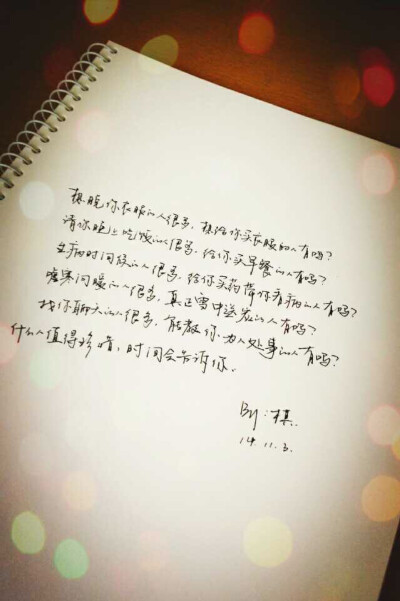 想脱你衣服的人很多，想给你买衣服的人有吗？
请你晚上吃饭的人很多，给你买早餐的人有吗？
生病时问候的人很多，给你买药带你看病的人有吗？
嘘寒问暖的人很多，真正雪中送炭的人有吗？
找你聊天的人很多，能教你为人处事的人有吗？
什么人值得珍惜，时间会告诉你。
By：棋
14.11.3.